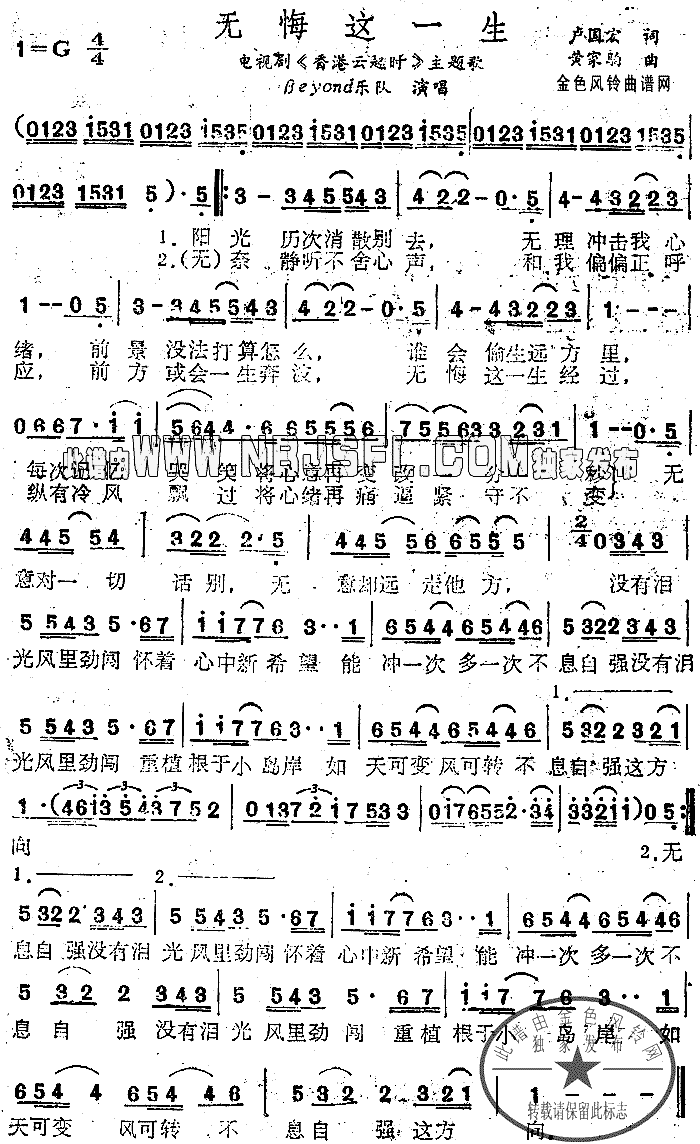 无悔这一生
1=G 4/4
电视剧《香港云起时》主题歌
Beyond乐队 演唱
卢国宏 词
黄家驹 曲
金色风铃曲谱网
(0123 1531 0123 1535 0123 1535 0123 1531 0123 1535
0123 1531 5)·5 3- 345543 422-0·5 4-43223
1.阳光 历次消散别去, 无理冲击我心
2.(无)奈 静听不舍心声, 和我偏偏正呼
1--05 3-345543 422-0·5 4-43223 1---
绪, 前景没法打算怎么, 谁会偷生远方里,
应, 前方或会一生奔波, 无悔这一生经过,
0667·11 5644·665556 7555633 3231 1--0·5
WWW.NRJSFL.COM 独家发布
纵有冷风 飘过将心绪再痛逼紧守不变 无
44554 3222·5 4455665555 2/4 0343
意对一切话别, 无意却远走他方, 没有泪
5 5435·67 11776 3··1 6544654456 5322343
光风里劲闯怀着 心中新希望能 冲一次多一次不息自强没有泪
1.
5 5435·67 11776 3··1 6544654456 5322321
光风里劲闯 重植根于小岛岸 如 天可变风可转不息自强这方
1·(4613543752 01372175 33 017655 2·34 33211)05
向 2.无
1. 2.
5322343 5 5435·67 11776 3··1 6544654456
息自强没有泪 光风里劲闯怀着 心中新希望能 冲一次多一次不
5 32 2 343 5 5435·67 1177 6 3··1
息自强没有泪光风里劲闯重植根于小岛岸如
654 4 654 456 5 32 2 321 1---
天可变 风可转不 息自强这方 向。
此谱由金色风铃网
独家发布
转载请保留此标志